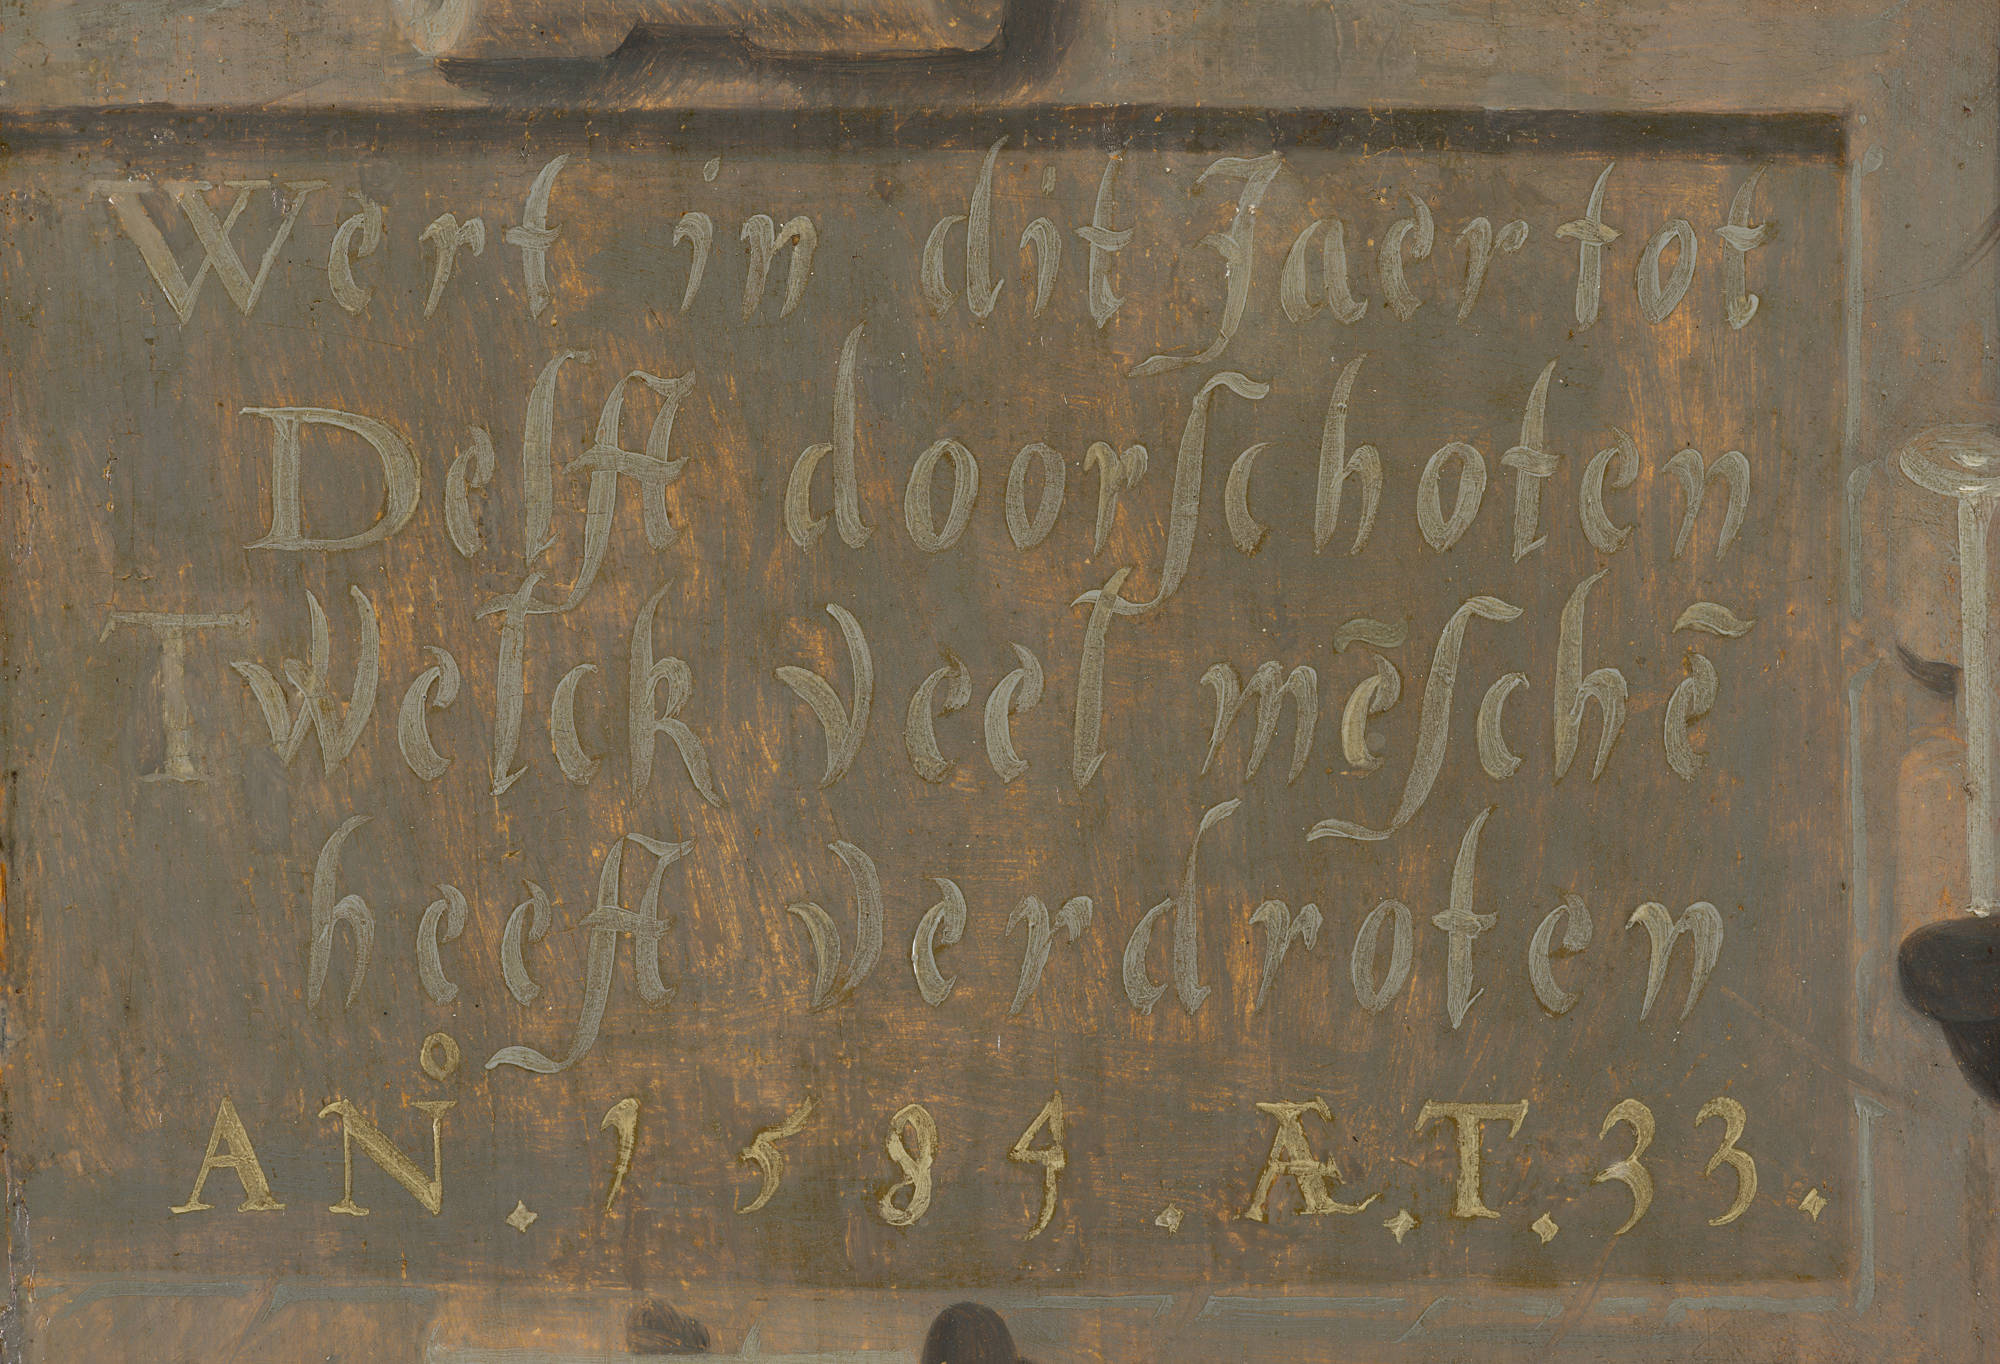 Wert in dit Jaer tot
Delfft doorſchoten
Twelck veel mēſchē
heefft verdroten
AN̊. 1584. ÆT. 33.